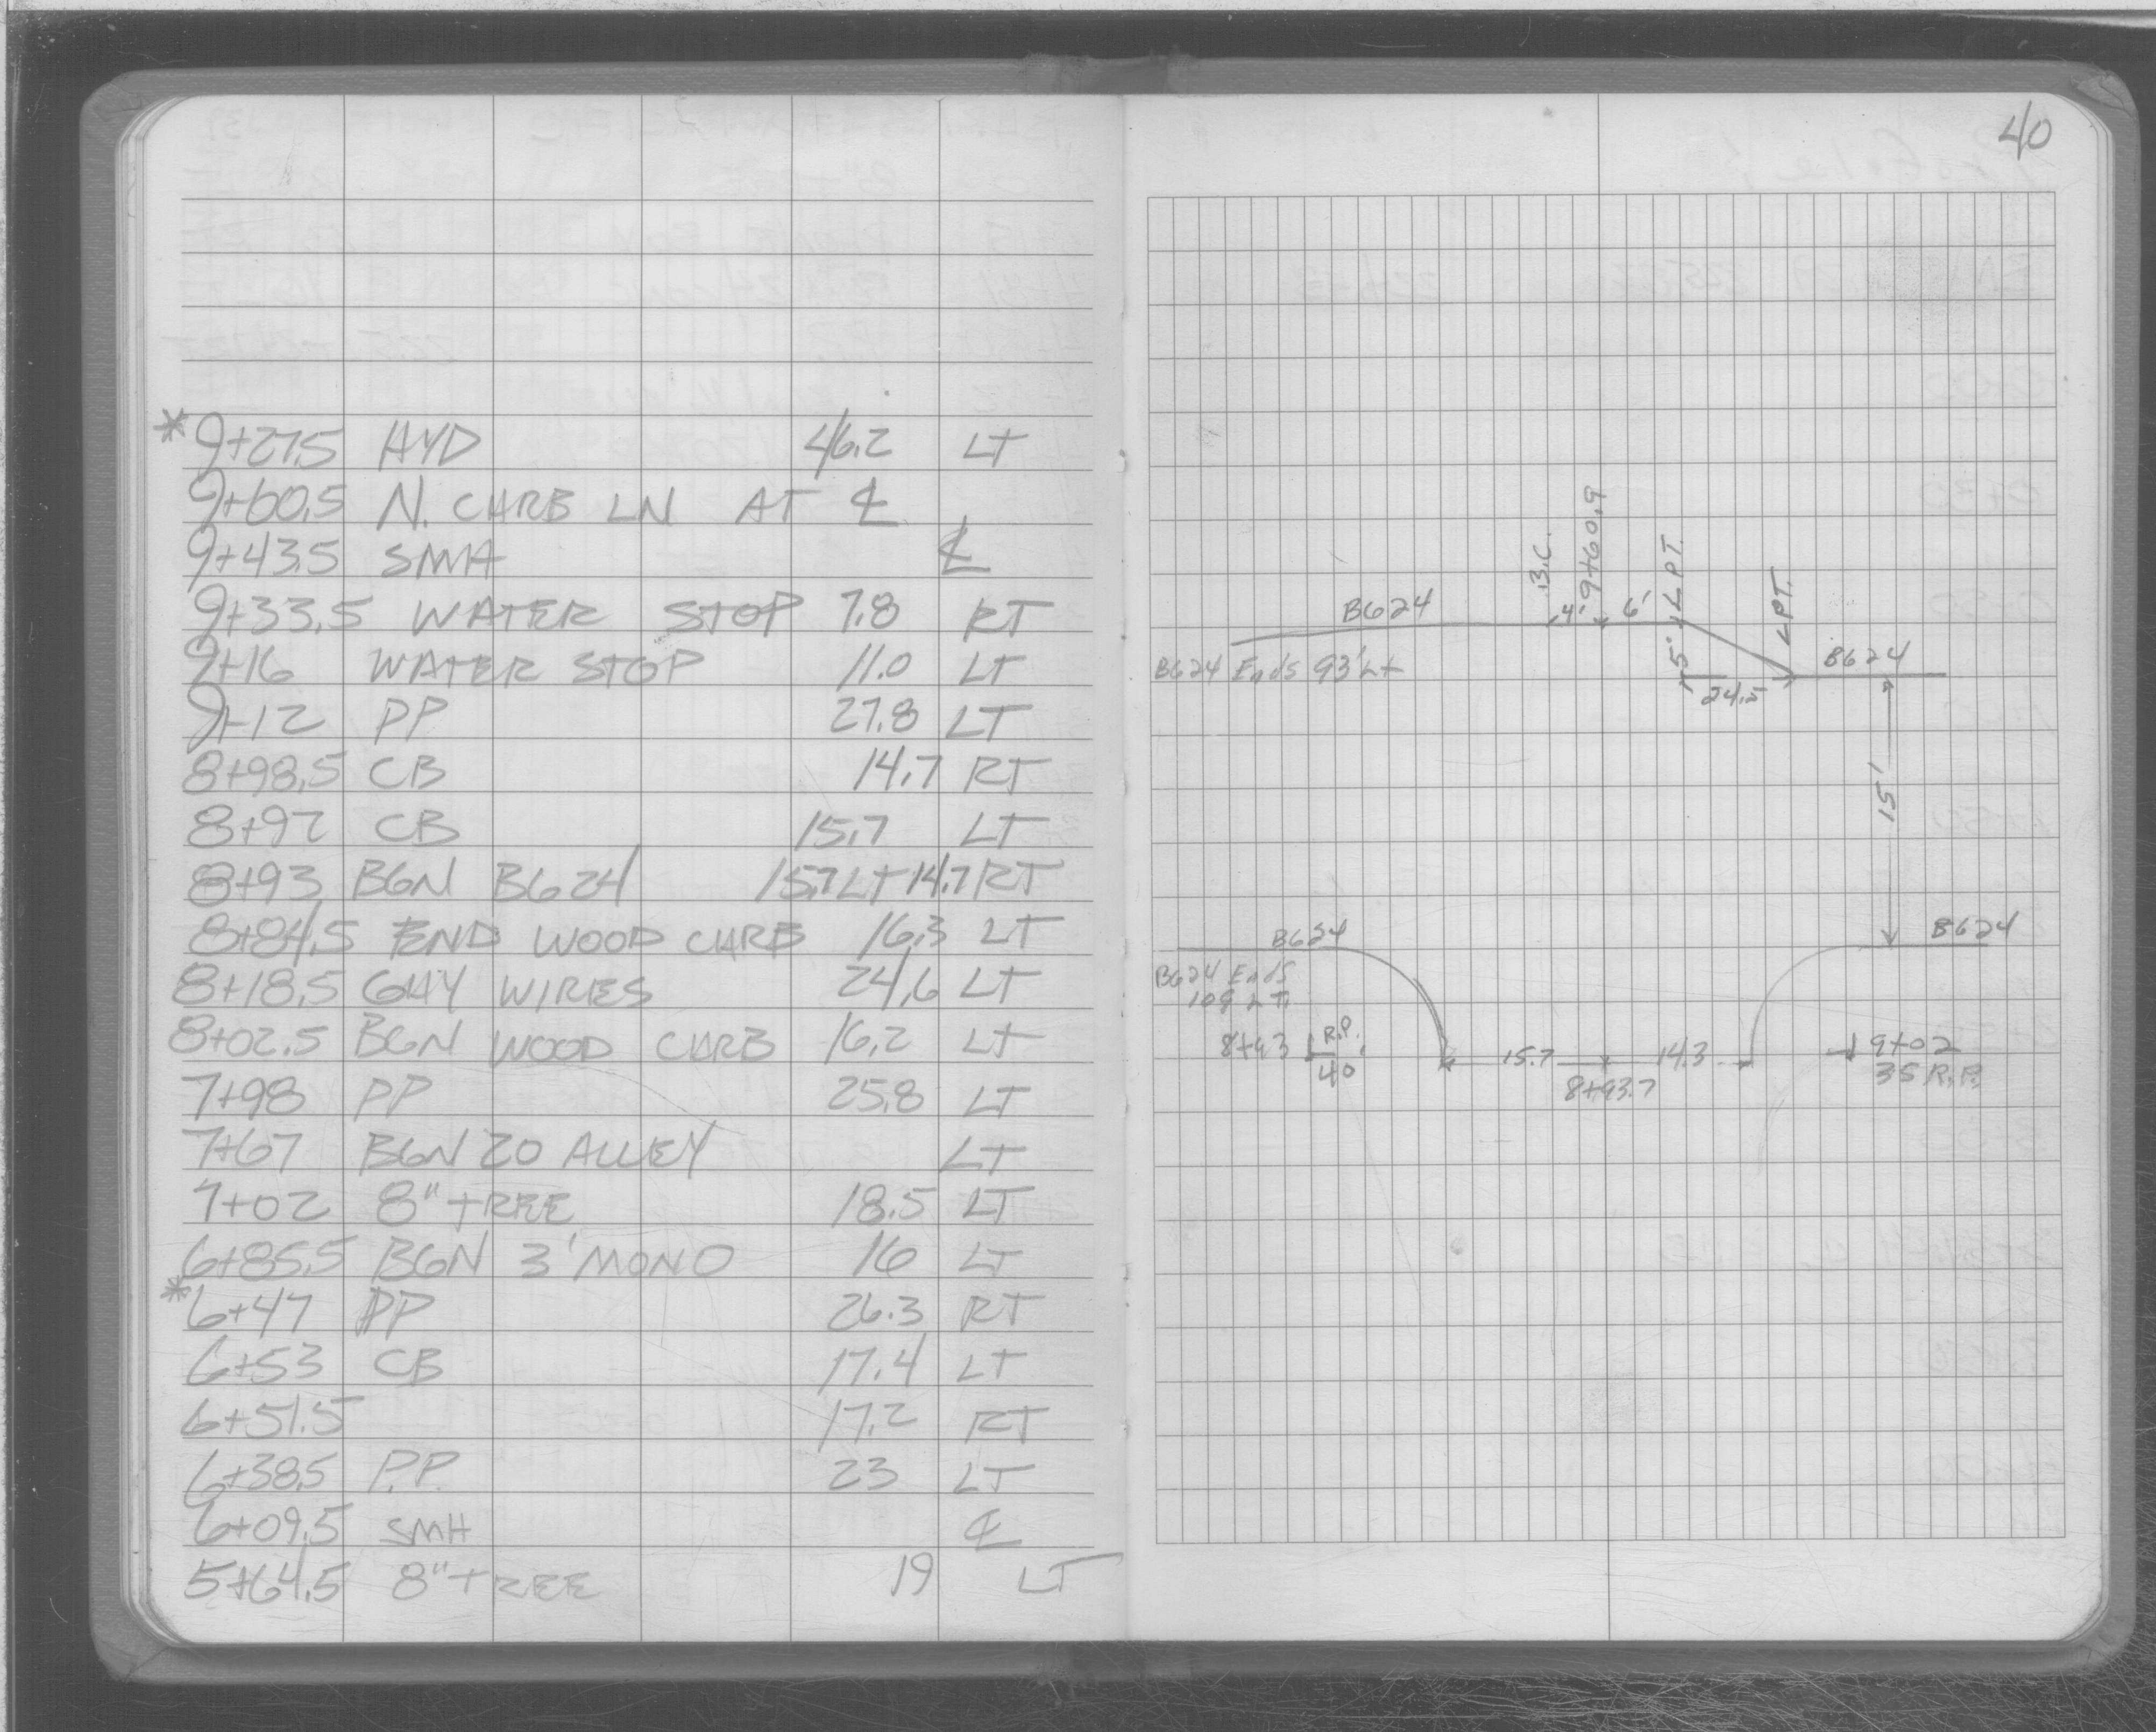 40
* 9+27.5 HYD 46.2 LT
9+60.5 N. CURB LN AT ℄
9+43.5 SMH ℄
9+33.5 WATER STOP 7.8 RT
9+16 WATER STOP 11.0 LT
9+12 PP 27.8 LT
8+98.5 CB 14.7 RT
8+97 CB 15.7 LT
8+93 BGN B624 15.7 LT 14.7 RT
8+84.5 END WOOD CURB 16.3 LT
8+18.5 GUY WIRES 24.6 LT
8+02.5 BGN WOOD CURB 16.2 LT
7+98 PP 25.8 LT
7+67 BGN 20 ALLEY LT
7+02 8" TREE 18.5 LT
6+85.5 BGN 3' MONO 16 LT
* 6+47 PP 26.3 RT
6+53 CB 17.4 LT
6+51.5 17.2 RT
6+38.5 P.P. 23 LT
6+09.5 SMH ℄
5+64.5 8" TREE 19 LT
B.C.
9+60.9
LPT.
LPT.
B624
4'
6'
5'
B624
B624 Ends 93' Lt
24.5
15'
B624
B624
B624 Ends
109 LT.
8+93
R.P.
40
15.7
14.3
8+93.7
9+02
35 R.P.